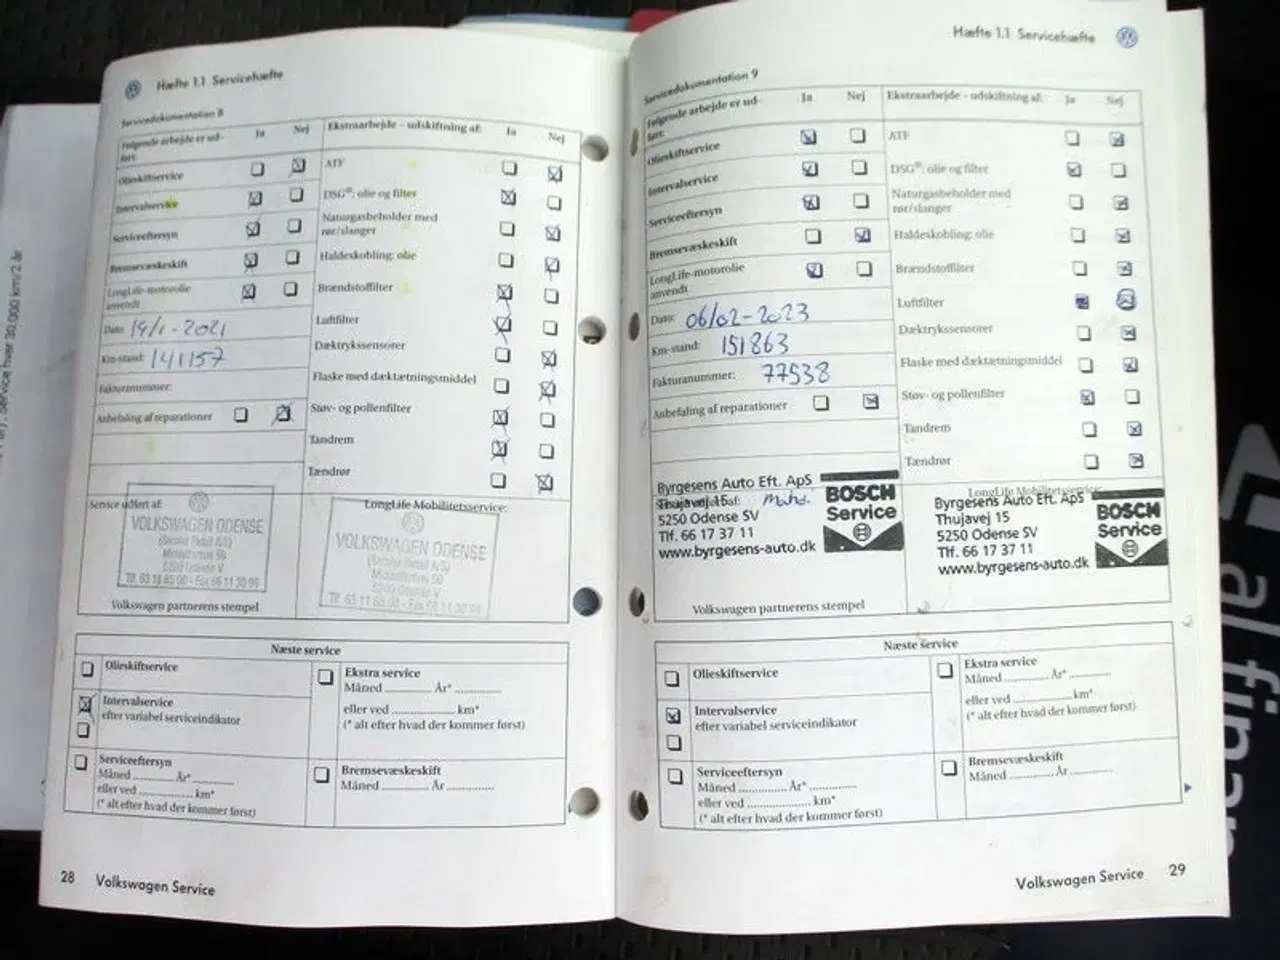 Service hver 30.000 km/2 år
Hæfte 1.1 Servicehæfte
Servicedokumentation 8
Følgende arbejde er ud-
ført:
Ja Nej
Ekstraarbejde – udskiftning af: Ja Nej
Olieskiftservice
Intervalservice
Serviceeftersyn
Bremsevæskeskift
LongLife-motorolie
anvendt
Dato: 19/1-2021
Km-stand: 141157
Fakturanummer:
Anbefaling af reparationer
ATF
DSG®: olie og filter
Naturgasbeholder med
rør/slanger
Haldeskobling: olie
Brændstoffilter
Luftfilter
Dæktrykssensorer
Flaske med dæktætningsmiddel
Støv- og pollenfilter
Tandrem
Tændrør
Service udført af:
VOLKSWAGEN ODENSE
5200 Odense V
Volkswagen partnerens stempel
LongLife Mobilitetsservice:
VOLKSWAGEN ODENSE
5200 Odense V
Næste service
Olieskiftservice
Intervalservice
efter variabel serviceindikator
Serviceeftersyn
Måned ............ År* ............
eller ved .................... km*
(* alt efter hvad der kommer først)
Ekstra service
Måned ............ År* ............
eller ved .................... km*
(* alt efter hvad der kommer først)
Bremsevæskeskift
Måned ............ År ............
28 Volkswagen Service
Hæfte 1.1 Servicehæfte
Servicedokumentation 9
Følgende arbejde er ud-
ført:
Ja Nej
Ekstraarbejde – udskiftning af: Ja Nej
Olieskiftservice
Intervalservice
Serviceeftersyn
Bremsevæskeskift
LongLife-motorolie
anvendt
Dato: 06/02-2023
Km-stand: 151863
Fakturanummer: 77538
Anbefaling af reparationer
ATF
DSG®: olie og filter
Naturgasbeholder med
rør/slanger
Haldeskobling: olie
Brændstoffilter
Luftfilter
Dæktrykssensorer
Flaske med dæktætningsmiddel
Støv- og pollenfilter
Tandrem
Tændrør
Byrgesens Auto Eft. ApS
Thujavej 15
5250 Odense SV
Tlf. 66 17 37 11
www.byrgesens-auto.dk
BOSCH
Service
Volkswagen partnerens stempel
LongLife Mobilitetsservice:
Byrgesens Auto Eft. ApS
Thujavej 15
5250 Odense SV
Tlf. 66 17 37 11
www.byrgesens-auto.dk
BOSCH
Service
Næste service
Olieskiftservice
Intervalservice
efter variabel serviceindikator
Serviceeftersyn
Måned ............ År* ............
eller ved .................... km*
(* alt efter hvad der kommer først)
Ekstra service
Måned ............ År* ............
eller ved .................... km*
(* alt efter hvad der kommer først)
Bremsevæskeskift
Måned ............ År ............
Volkswagen Service 29